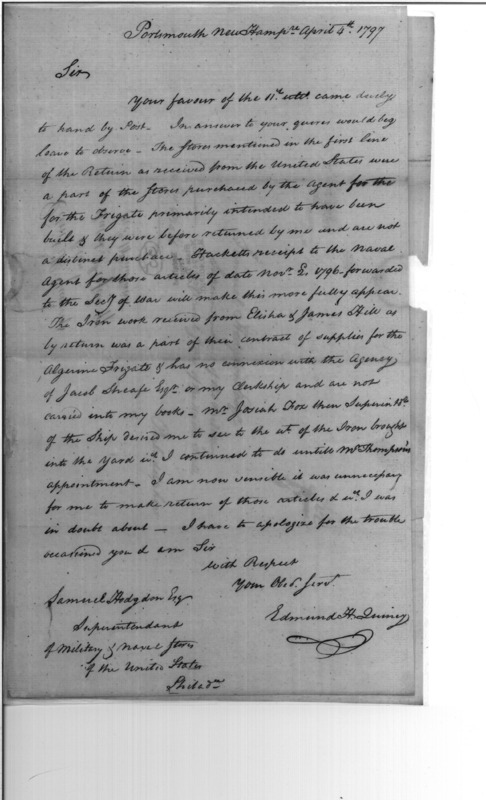 Portsmouth New Hampre April 4th 1797
Sir
Your favour of the 11th ulto. came duely
to hand by Post. In answer to your queres would beg
leave to observe - The Stores mentioned in the first line
of the Return as received from the United States were
a part of the Stores purchased by the Agent for the
for the Frigate primarily intended to have been
built & they were before returned by me and are not
a distinct purchase. - Hacketts receipt to the Naval
Agent for those articles of date Novr. 2. 1796. forwarded
to the Secy of War will make this more fully appear.
The Iron work received from Elisha & James Hill as
by return was a part of their contract of supplies for the
Algerine Frigate & has no connexion with the Agency
of Jacob Sheafe Esqr. or my Clerkship and are not
carried into my books - Mr. Josiah Fox then Superintdt.
of the Ship desired me to see to the wt. of the Iron brought
into the Yard wh. I continued to do untill Mr Thompson's
appointment. - I am now sensible it was unnecessary
for me to make return of those articles & wh. I was
in doubt about - I have to apologize for the trouble
occasioned you & am Sir
With Respect
Your Obedt. Servt.
Edmund H. Quincy
Samuel Hodgdon Esq
Superintendant
of Military & Naval Stores
of the United States
Philada